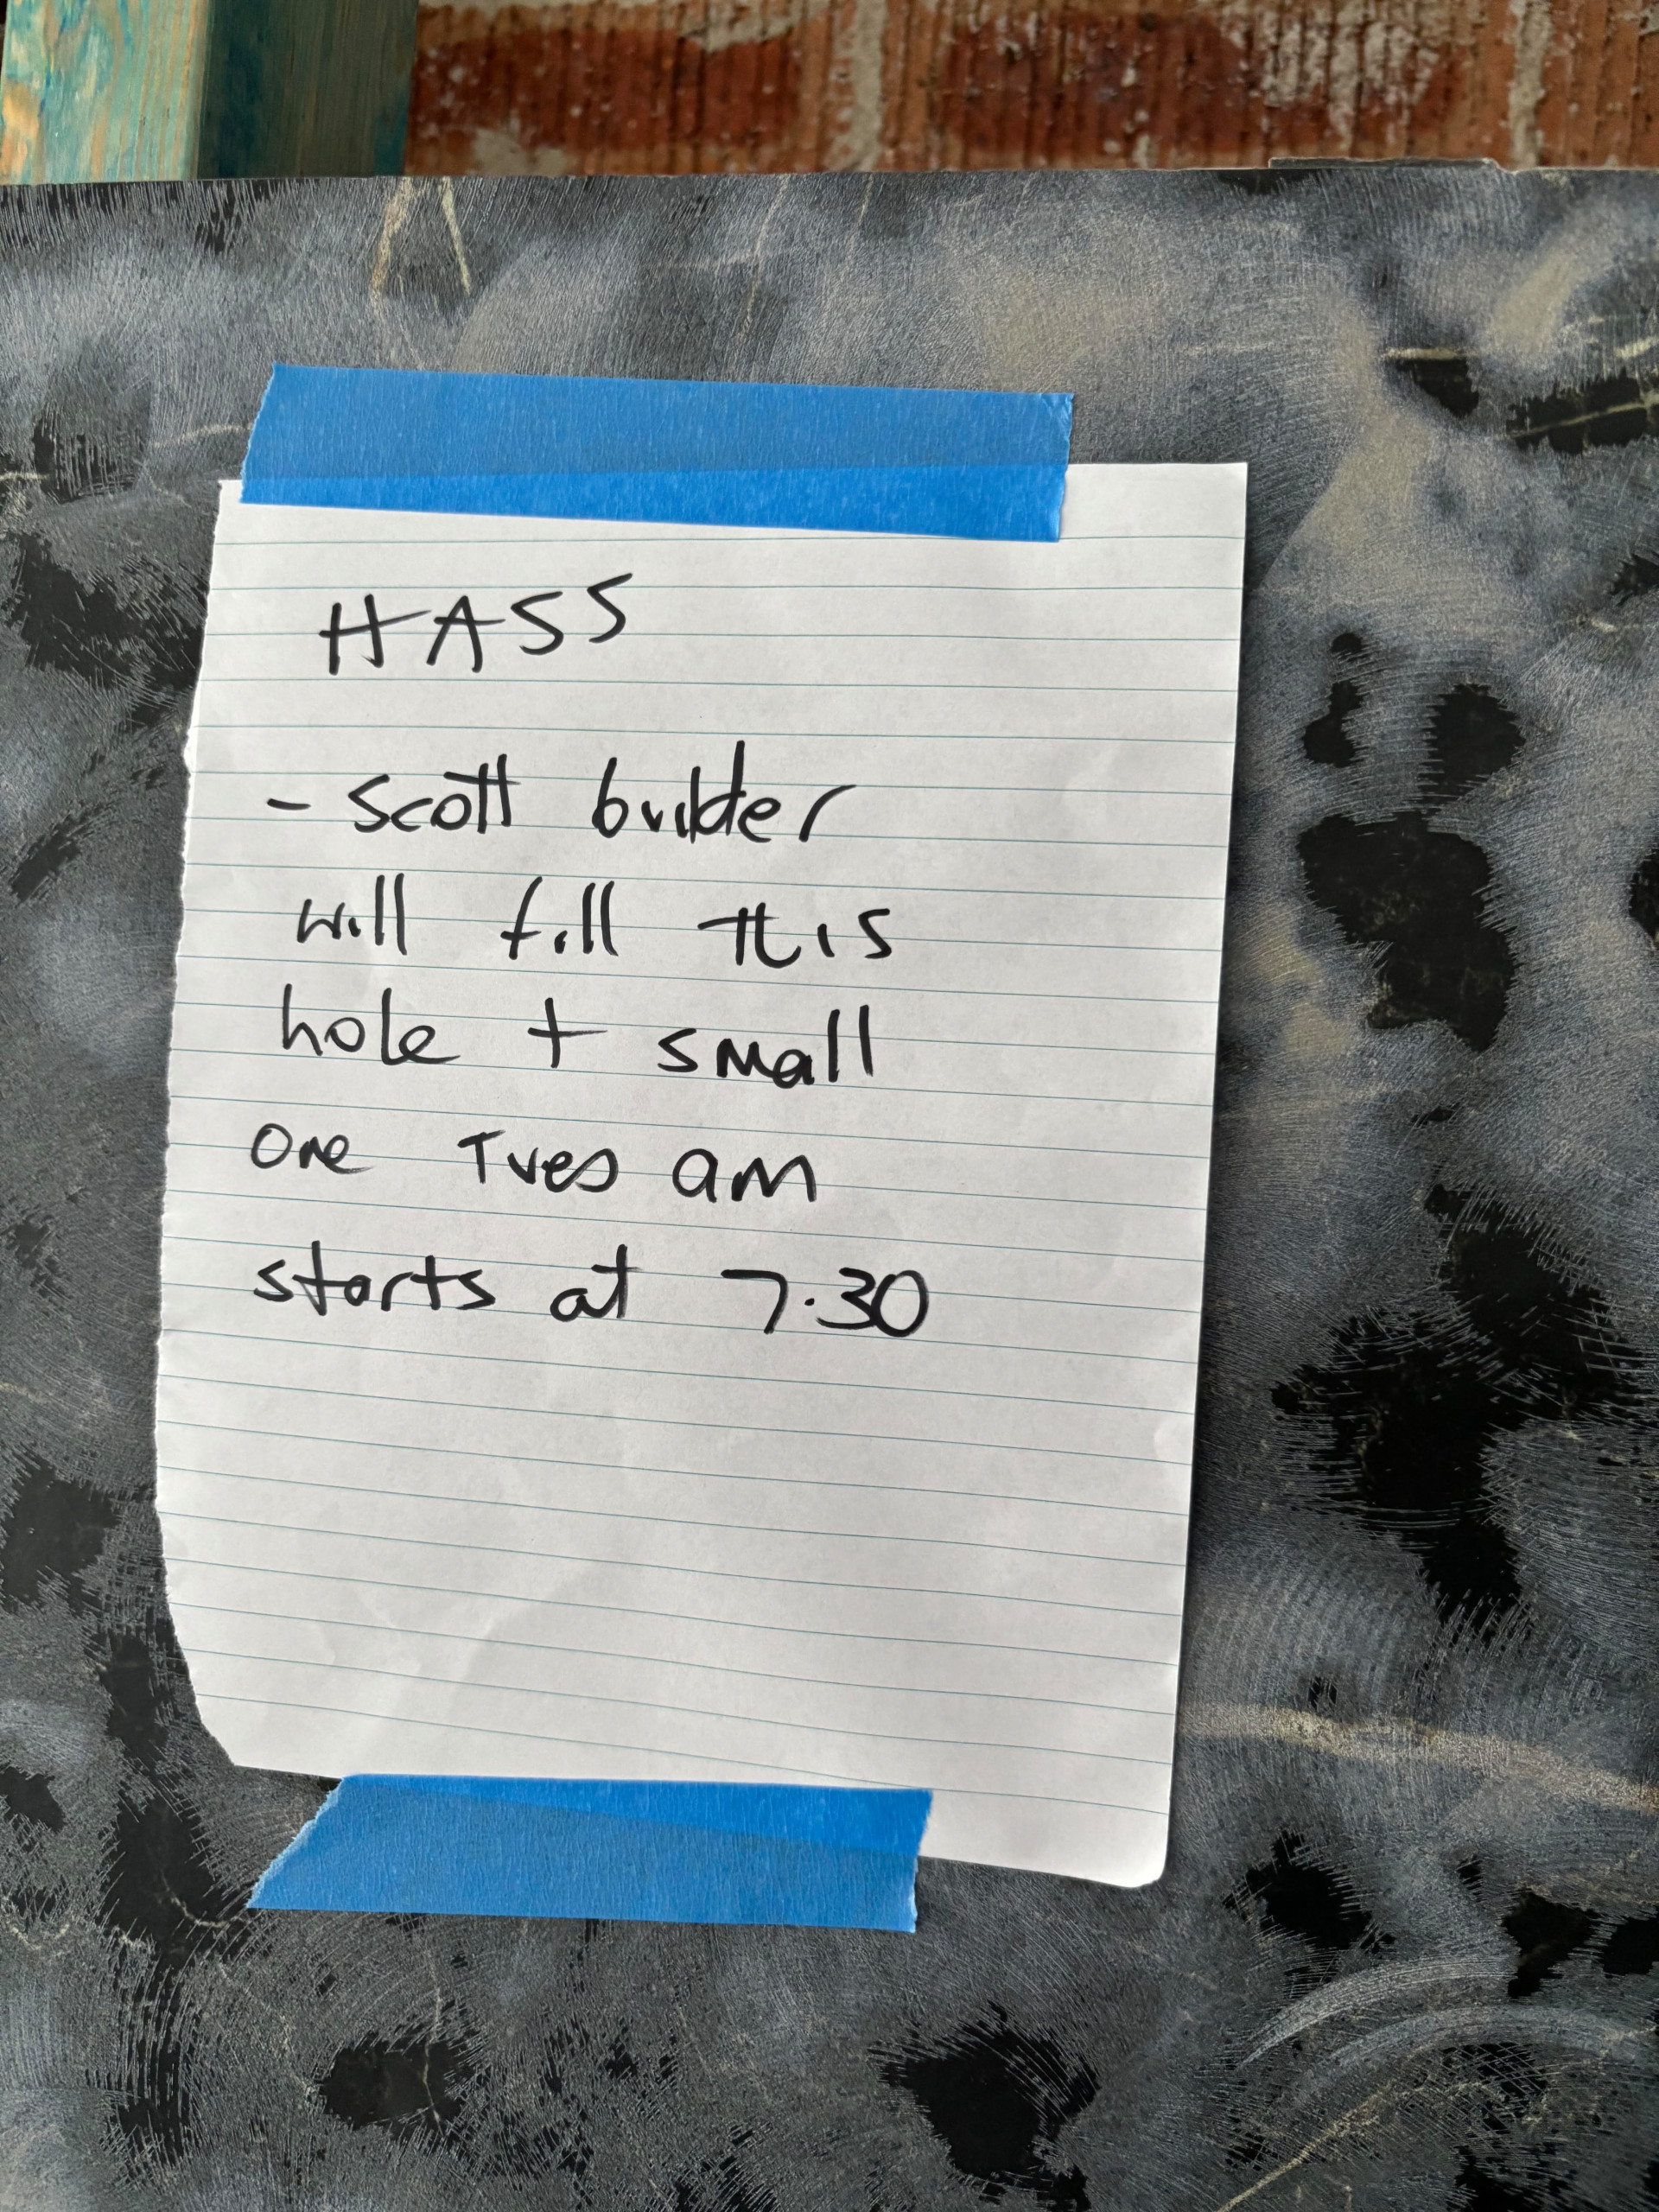 HASS
- Scott builder
will fill this
hole + small
one Tues am
starts at 7.30